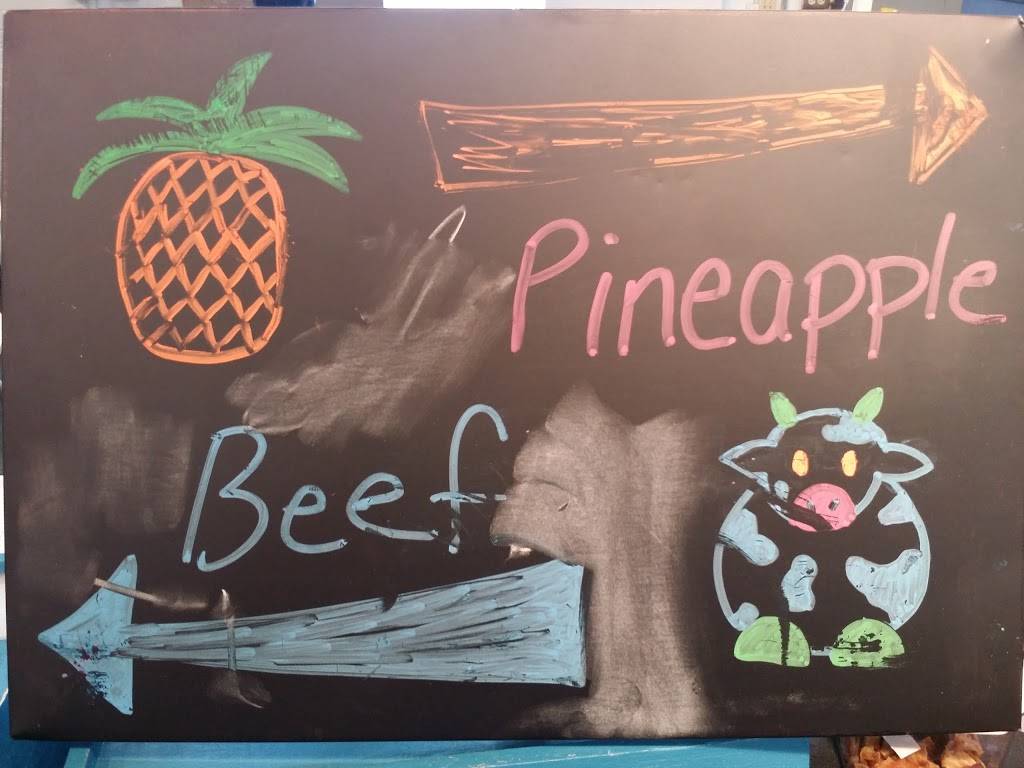 Pineapple
Beef